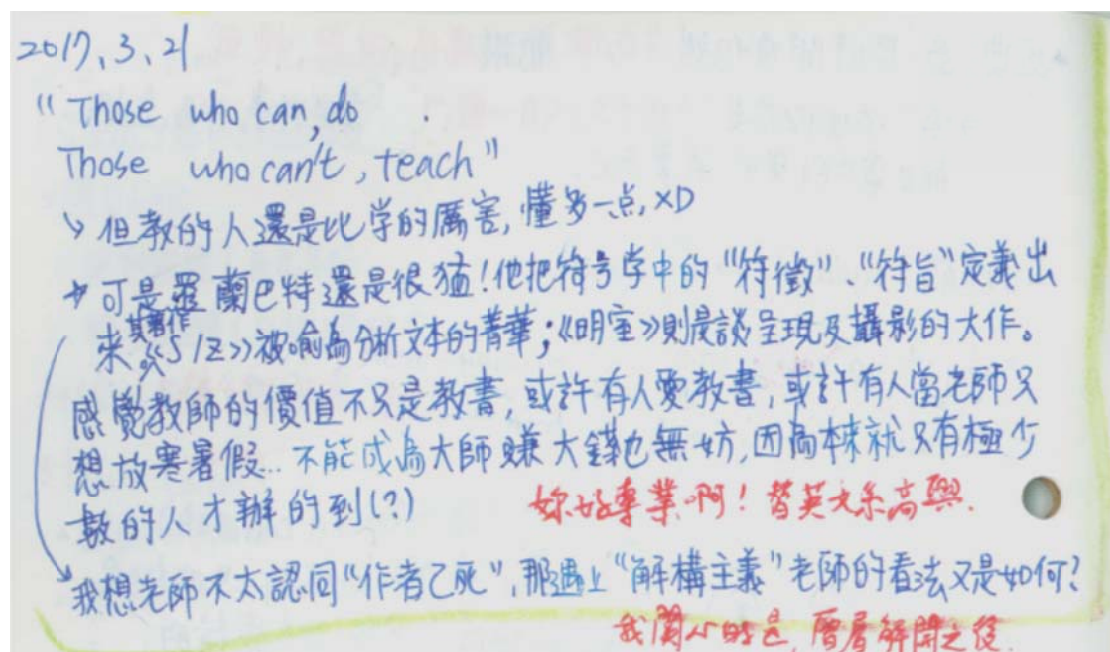 2017.3.21
"Those who can, do.
Those who can't, teach"
↳ 但教的人還是比学的厲害,懂多一点,XD
→ 可是羅蘭巴特還是很猛!他把符号学中的"符徵"、"符旨"定義出
來,其著作《S/Z》被喻為分析文本的菁華;《明室》則是談呈現及攝影的大作。
感覺教師的價值不只是教書,或許有人愛教書,或許有人當老師只
想放寒暑假...不能成為大師賺大錢也無妨,因為本來就只有極少
數的人才辦的到(?)
妳好專業啊!替英文系高興.
我想老師不太認同"作者已死",那遇上"解構主義"老師的看法又是如何?
我關心的是,層層解開之後